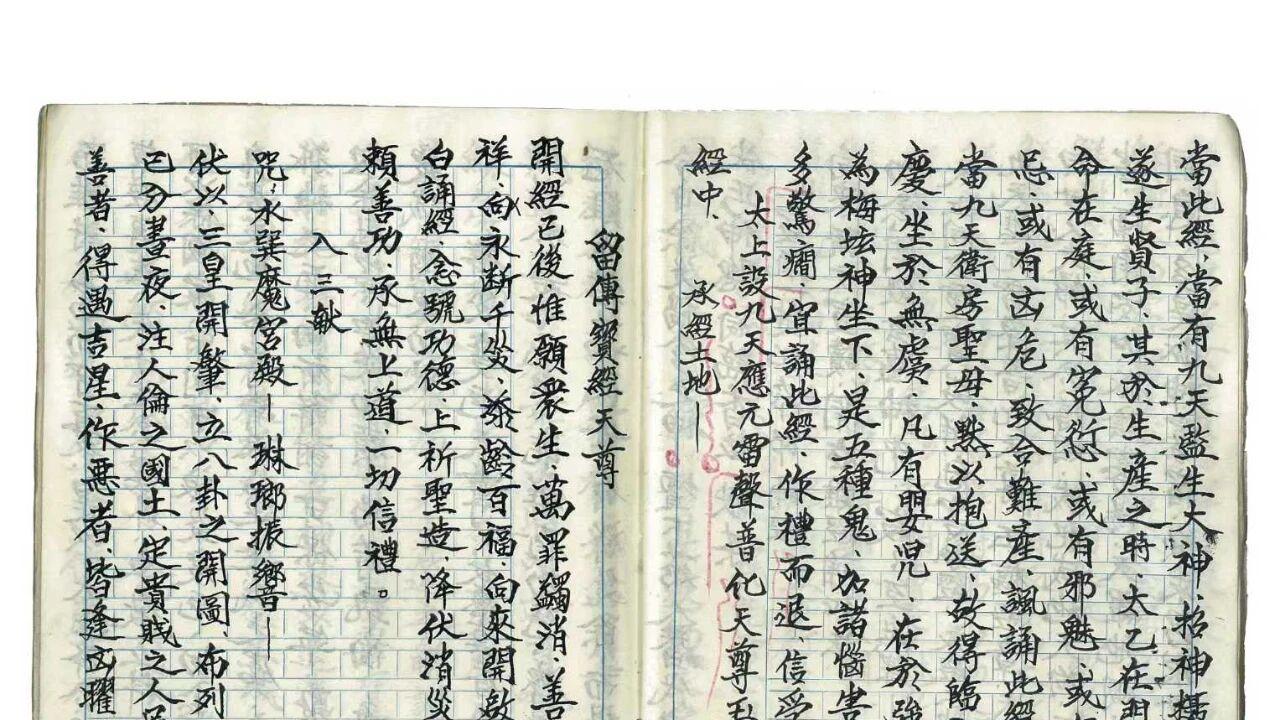 當此經、當有九天監生大神、招神攝
遂生賢子、其於生產之時、太乙在門
命在庭、或有冤愆、或有邪魅、或
忌、或有凶危、致令難產、諷誦此經
當九天衛房聖母、默以抱送、故得臨
慶、坐於無虞、凡有嬰児、在於強
為梅垓神坐下、是五種鬼、加諸惱害
多驚癎、宜誦此經、作禮而退、信受
太上設九天應元雷聲普化天尊玉
經中、 承經土地—
留傳寶經天尊
開經已後、惟願衆生、萬罪蠲消、善
祥、向永断千災、添齡百福、向來開啟
白誦經、念號功德、上祈聖造、降伏消災
賴善功、承無上道、一切信禮。
入三献
咒、水巽魔宮殿— 琳瑯振響—
伏以、三皇開肇、立八卦之開圖、布列
已分晝夜、注人倫之國土、定貴賎之人
善者、得遇吉星、作悪者、皆逢凶曜